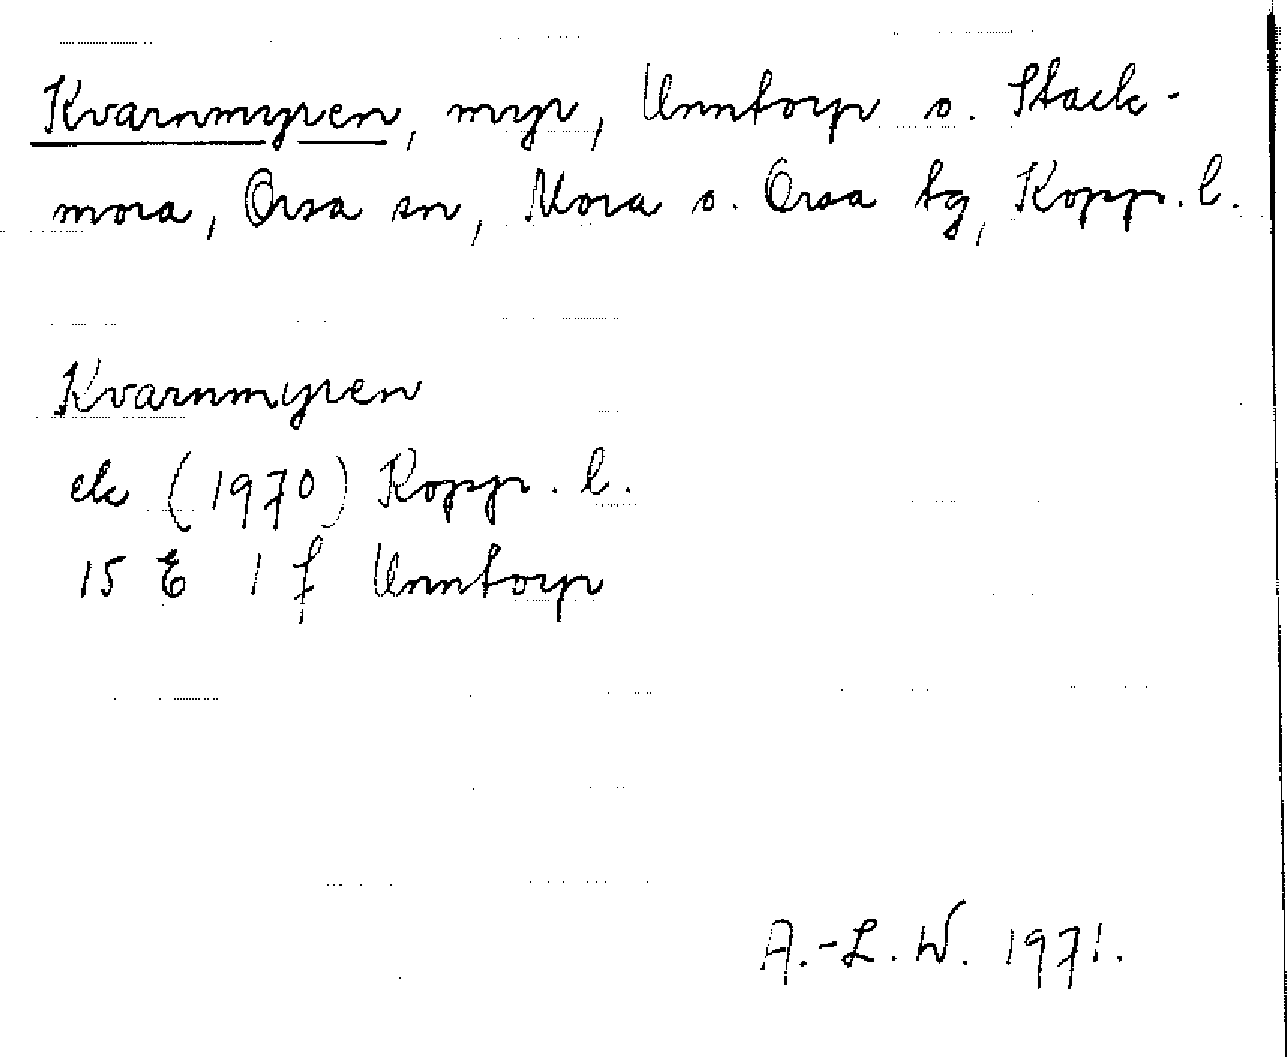 Kvarnmyren, myr, Unntorp o. Stack-
mora, Orsa sn, Mora o. Orsa tg, Kopp. l.
Kvarnmyren
ek (1970) Kopp. l.
15 E 1 f Unntorp
A.-L. W. 1971.